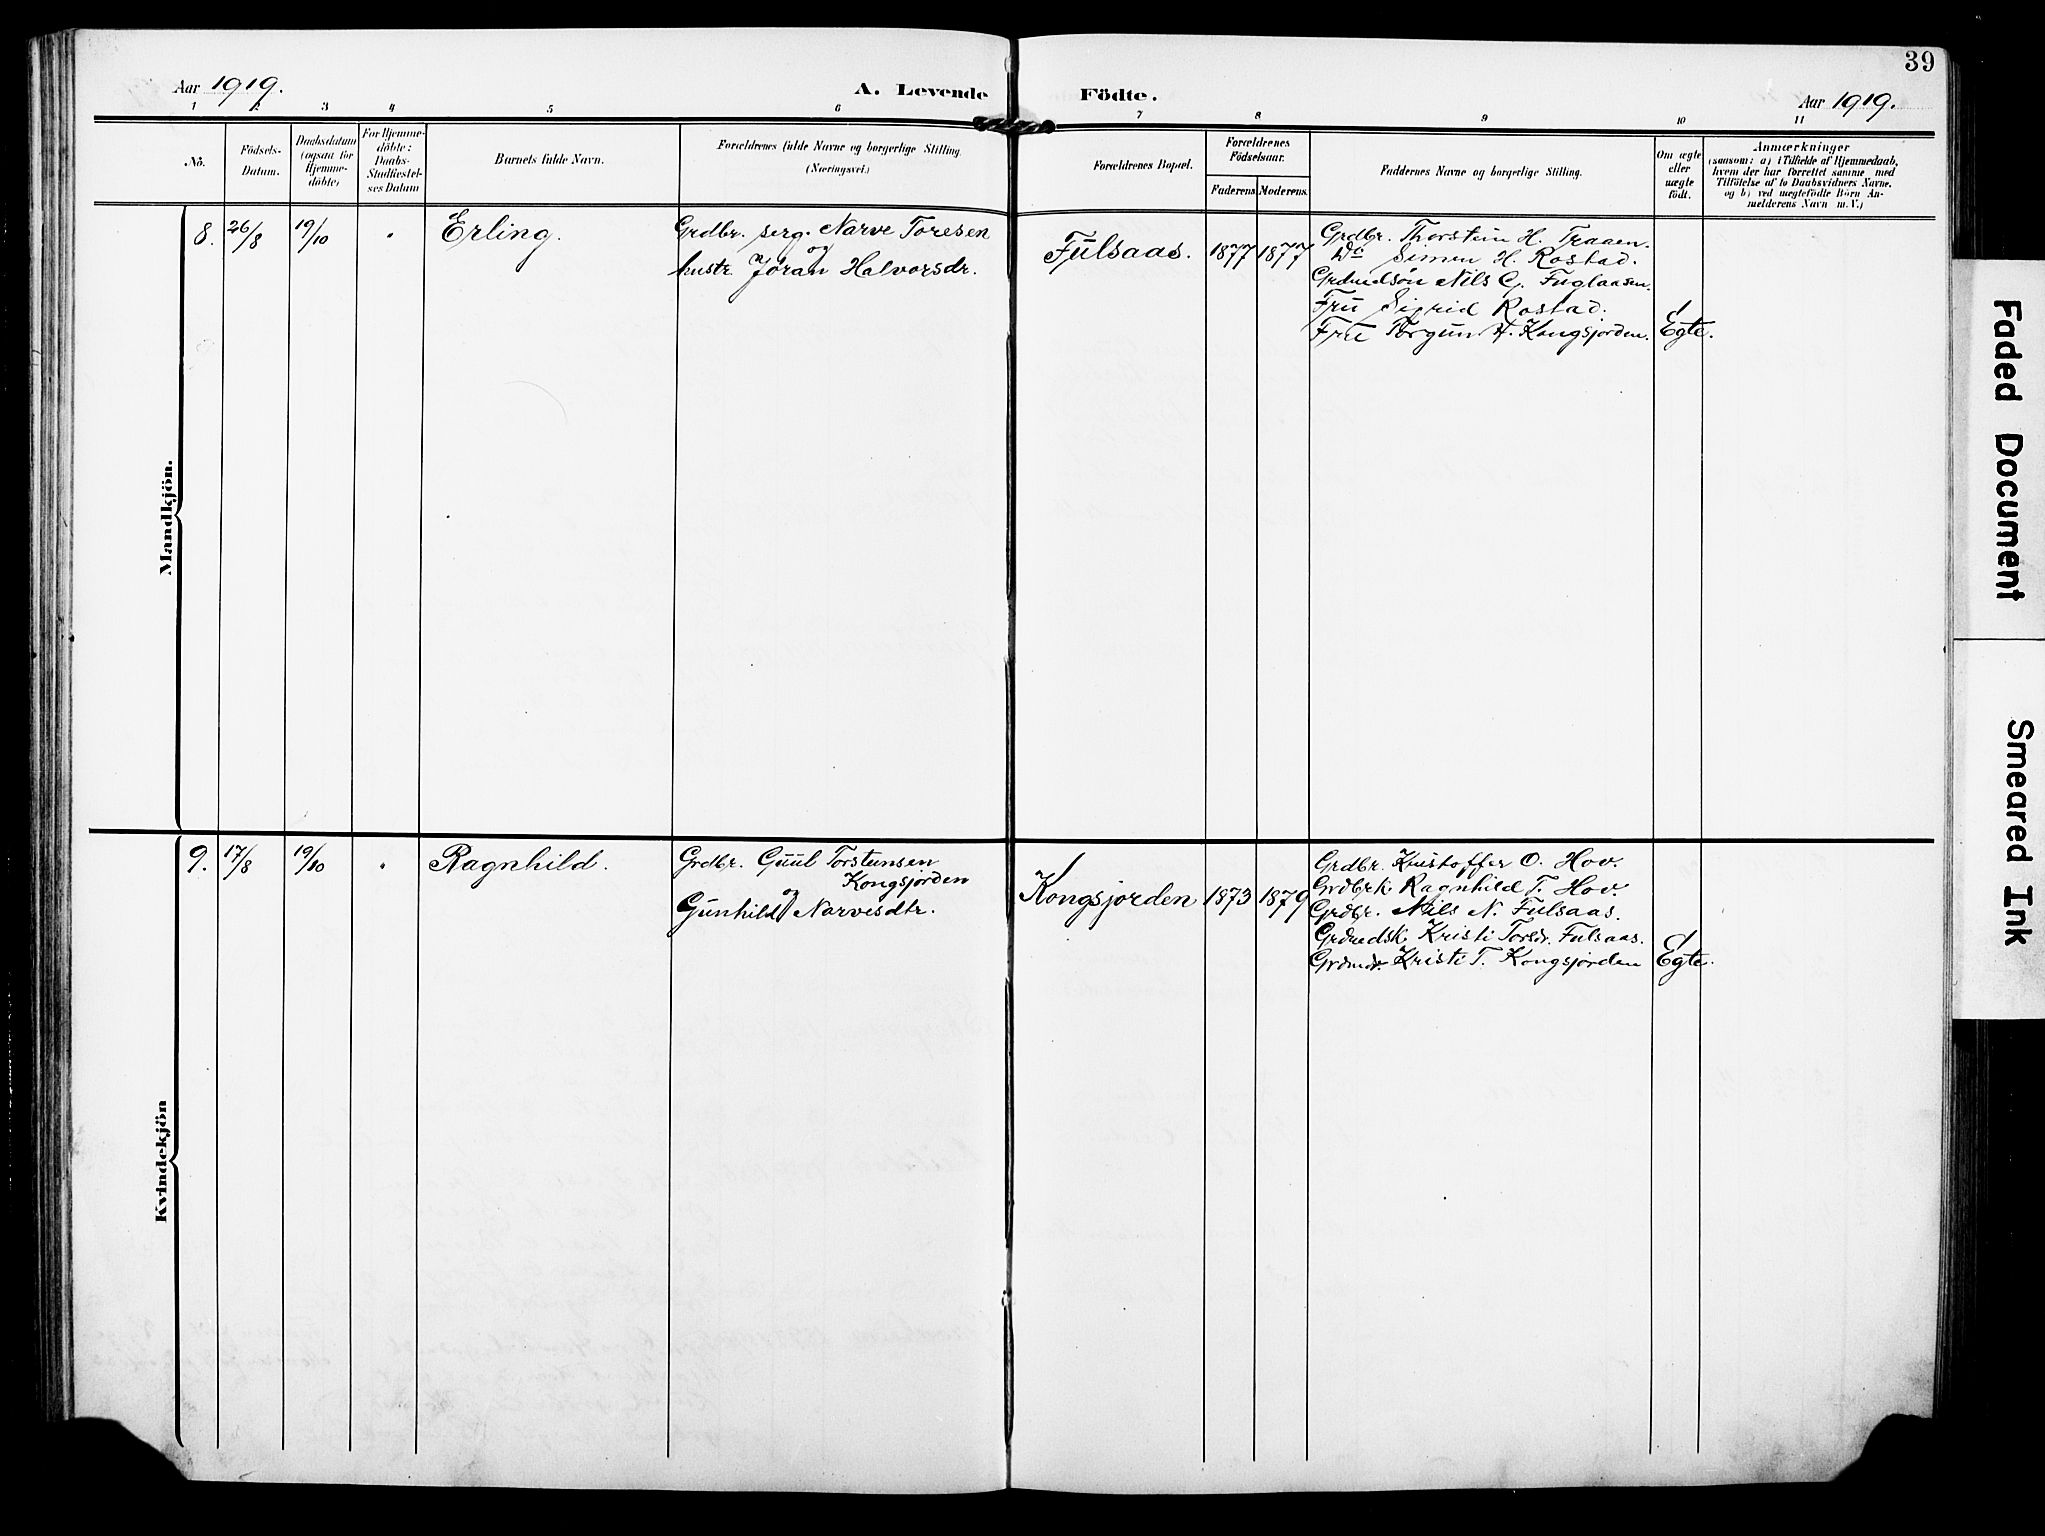 39
Aar 1919.
A. Levende Födte.
Aar 1919.
1 2 3 4 5 6 7 8 9 10 11
No.
Födsels-
Datum.
Daabsdatum
(ogsaa for
Hjemme-
döbte)
For Hjemme-
döbte:
Daabs-
Stadfæstel-
ses Datum
Barnets fulde Navn.
Forældrenes fulde Navne og borgerlige Stilling.
(Næringsvei.)
Forældrenes Bopæl.
Forældrenes
Födselsaar.
Faderens. Moderens.
Faddernes Navne og borgerlige Stilling.
Om ægte
eller
uægte
födt.
Anmærkninger
(saasom: a) i Tilfælde af Hjemmedaab,
hvem der har forrettet samme med
Tilföielse af to Daabsvidners Navne.
og b) ved uægtefödte Börn An-
melderens Navn m.V.)
Mandkjön.
8. 26/8 19/10 " Erling.
Grdbr. serg. Narve Toresen
og
hustr. Jøran Halvorsdr.
Fulsaas. 1877 1877
Grdbr. Thorstein H. Traaen.
Do Simen H. Rostad.
Grdmdsøn Nils G. Fuglaasen.
Fru Sigrid Rostad.
Fru Torgun H. Kongsjorden.
Egte.
Kvindekjön
9. 17/8 19/10 " Ragnhild.
Grdbr. Guul Torsteinsen
Kongsjorden
og
Gunhild Narvesdtr.
Kongsjorden 1873 1879
Grdbr. Kristoffer O. Hov.
Grdbrk. Ragnhild T. Hov
Grdbr. Nils N. Fulsaas.
Grdmdsk. Kristi Torsdr. Fulsaas.
Grdmdr. Kristi T. Kongsjorden
Egte.
Faded Document
Smeared Ink